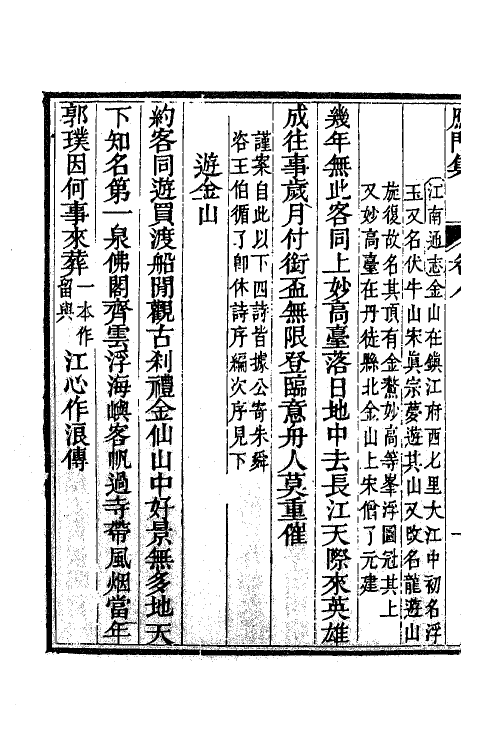 鴈門集
卷八
一
江南通志金山在鎮江府西七里大江中初名浮
玉又名伏牛山宋眞宗夢遊其山又改名龍遊山
施復故名其頂有金鰲妙高等峯浮圖冠其上
又妙高臺在丹徒縣北金山上宋僧了元建
幾年無此客同上妙高臺落日地中去長江天際來英雄
成往事歲月付銜盃無限登臨意舟人莫重催
謹案自此以下四詩皆據公寄朱舜
咨王伯循了卽休詩序編次序見下
遊金山
約客同遊買渡船閒觀古刹禮金仙山中好景無多地天
下知名第一泉佛閣齊雲浮海嶼客帆過寺帶風烟當年
郭璞因何事來葬一本作留與江心作浪傳